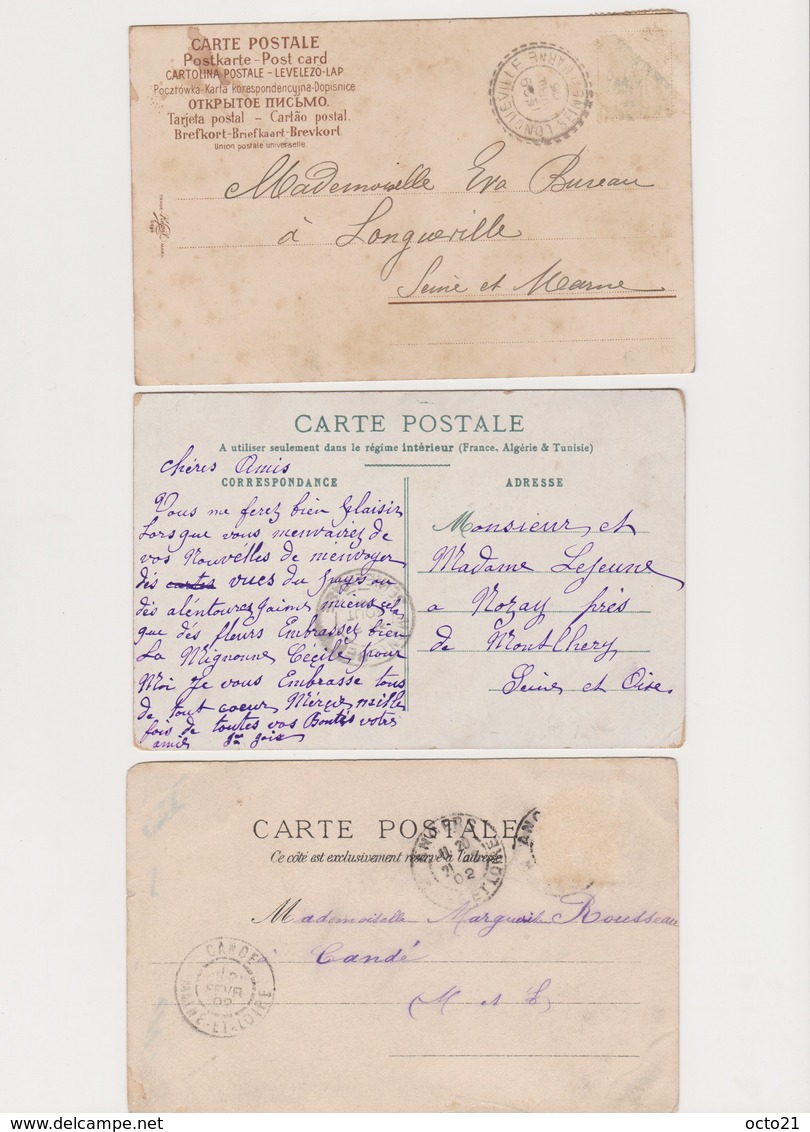 CARTE POSTALE
Postkarte - Post card
CARTOLINA POSTALE - LEVELEZÖ-LAP
Pocztówka-Karta korespondencyjna-Dopisnice
ОТКРЫТОЕ ПИСЬМО.
Tarjeta postal - Cartão postal.
Brefkort-Briefkaart-Brevkort
Union postale universelle
LONGUEVILLE
Mademoiselle Eva Bureau
à Longueville
Seine et Marne
CARTE POSTALE
A utiliser seulement dans le régime intérieur (France, Algérie & Tunisie)
chéres Amis
CORRESPONDANCE
Vous me ferez bien plaisir
Lorsque vous menvairez de
vos Nouvélles de menvoyer
dés cartes vues du pays ou
dés aléntoures jaime mieus cela
que dés fleurs Embrassez bien
La Mignonne Cécile pour
Moi Je vous Embrasse tous
de tout coeur Mércie mille
fois de toutes vos Bontés votre
amie
ADRESSE
Monsieur et
Madame Lejeune
a Nozay prés
de Montlhery
Seine et Oise
CARTE POSTALE
Ce côté est exclusivement réservé à l'adresse
ANGERS
11 20
21
02
ET LOIRE
ANG
Mademoiselle Marguerite Rousseau
Candé
M et L
CANDE
FEVR
02
MAINE-ET-LOIRE
octo21